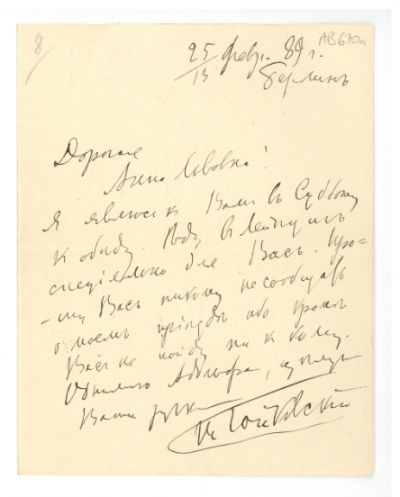 8
АВ670а
25/13 февр. 89 г.
Берлинъ
Дорогая
Анна Львовна!
Я явлюсь къ Вамъ въ Субботу
къ обѣду. Ѣду въ Лейпцигъ
спеціально для Васъ. Про-
шу Васъ никому не сообщать
о моемъ пріѣздѣ ибо кромѣ
Васъ не пойду ни къ кому.
Обнимаю Адольфа, цѣлую
Ваши руки
П. Чайковскій